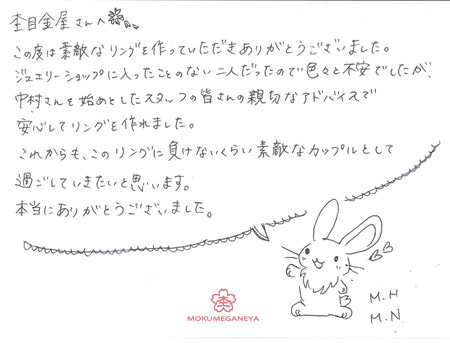 杢目金屋さんへ
この度は素敵なリングを作っていただきありがとうございました。
ジュエリーショップに入ったことのない二人だったので色々と不安でしたが、
中村さんを始めとしたスタッフの皆さんの親切なアドバイスで
安心してリングを作れました。
これからも、このリングに負けないくらい素敵なカップルとして
過ごしていきたいと思います。
本当にありがとうございました。
M.H
M.N
杢
MOKUMEGANEYA